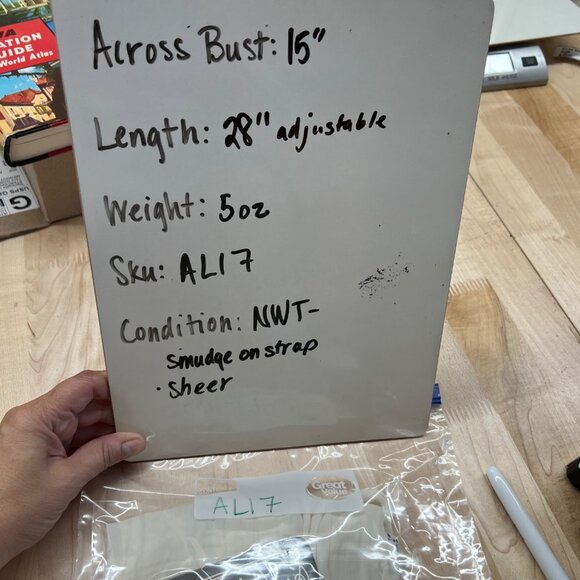 ATION
UIDE
World Atlas
USPS
G
Across Bust: 15"
Length: 28" adjustable
Weight: 5oz
Sku: AL17
Condition: NWT-
smudge on strap
· sheer
Great
Value
AL17